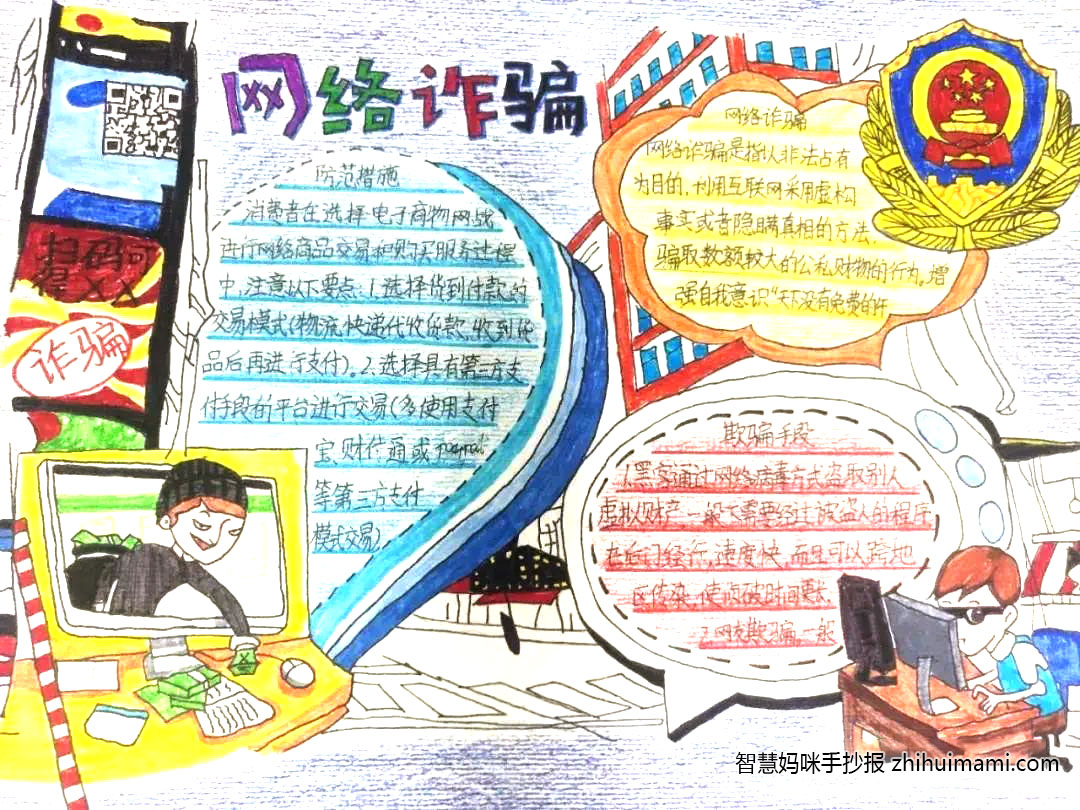 网络诈骗
扫码可
得XX
诈骗
防范措施
消费者在选择电子商物网战
进行网络商品交易和购买服务过程
中,注意以下要点:1.选择货到付款的
交易模式(物流,快递代收货款,收到货
品后再进行支付)。2.选择具有第三方支
付手段的平台进行交易(多使用支付
宝,财付通或paypal
等第三方支付
模式交易)
网络诈骗
网络诈骗是指以非法占有
为目的,利用互联网采用虚构
事实或者隐瞒真相的方法,
骗取数额较大的公私财物的行为。增
强自我意识“天下没有免费的午
欺骗手段
1.黑客通过网络病毒方式盗取别人
虚拟财产一般不需要经过被盗人的程序
在后门径行,速度快,而且可以跨地
区传染,使侦破时间更长.
2.网友欺骗,一般
智慧妈咪手抄报 zhihuimami.com